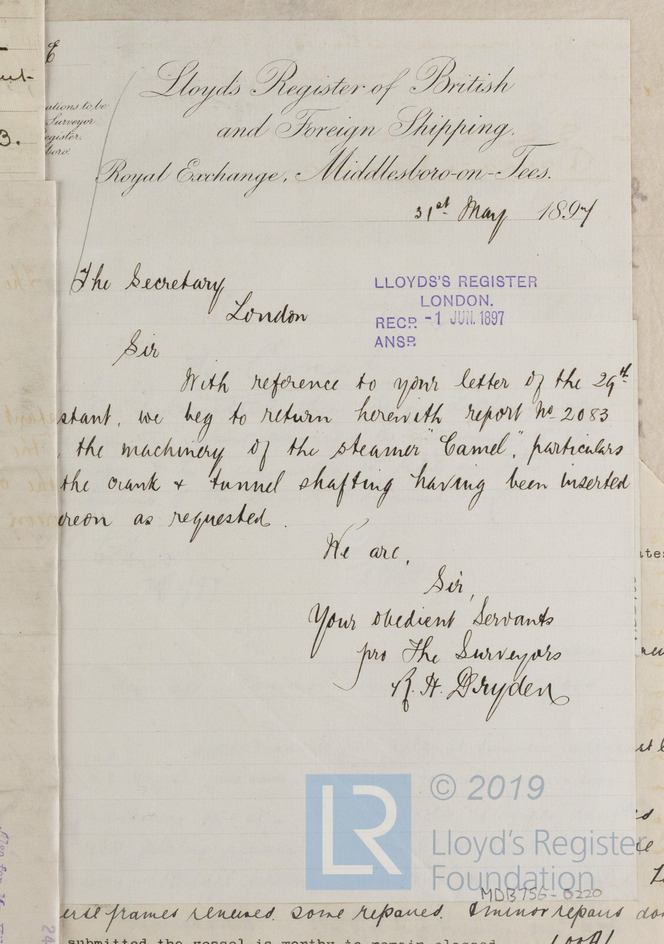 Lloyds Register of British
and Foreign Shipping.
Royal Exchange, Middlesboro-on-Tees.
31st May 1897
The Secretary
London
LLOYDS'S REGISTER
LONDON.
RECP. -1 JUN. 1897
ANSR.
Sir
With reference to your letter of the 29th
stant, we beg to return herewith report No 2083
the machinery of the steamer "Camel", particulars
the crank & tunnel shafting having been inserted
ereon as requested.
We are,
Sir,
Your obedient Servants
pro The Surveyors
R. H. Dryden
LR © 2019
Lloyd's Register
Foundation
MDB756-8220
erse frames renewed. some repaired. & minor repairs don
submitted the vessel is worthy to remain classed
ations to be
Surveyor
egister,
boro'.
3.
24